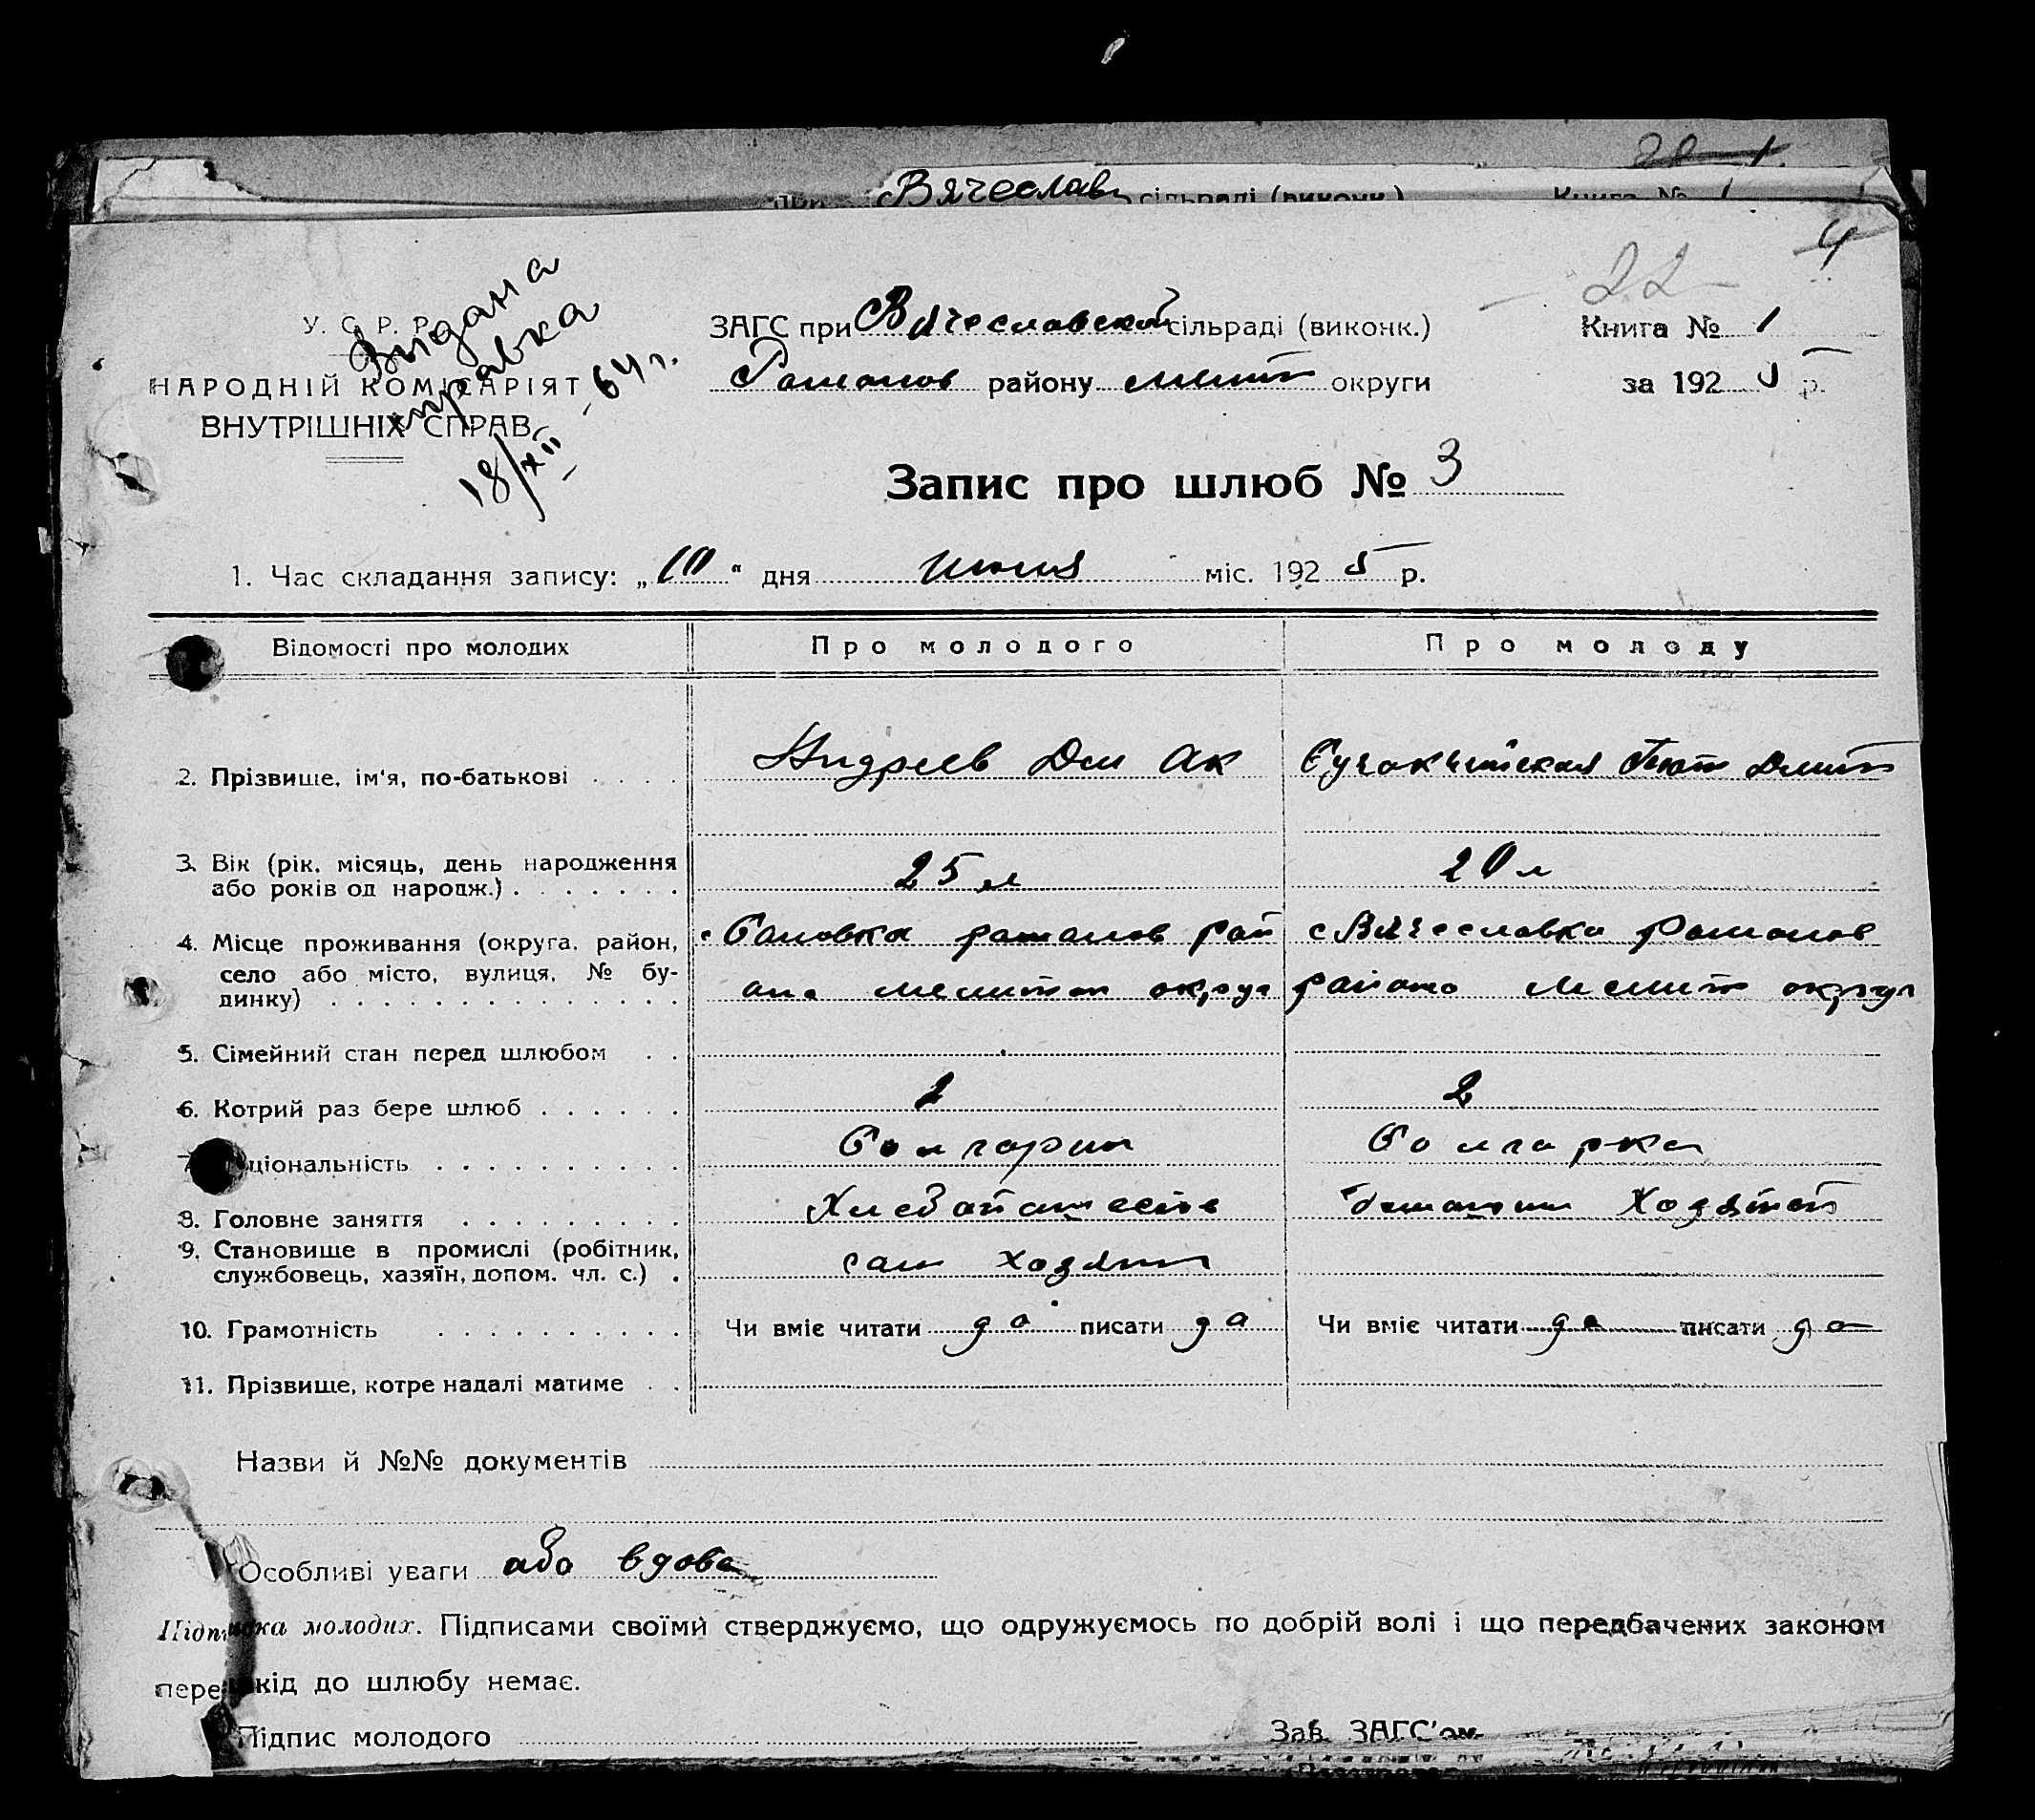 Вячеславс сільраді (виконк.) Книга № 1
22
4
Видана
справка
18/XII - 64 г.
У. С. Р. Р.
НАРОДНІЙ КОМІСАРІЯТ
ВНУТРІШНІХ СПРАВ
ЗАГС при Вячеславской сільраді (виконк.) Книга № 1
Романов району Мелит округи за 1925 р.
Запис про шлюб № 3
1. Час складання запису: „10“ дня июня міс. 1925 р.
Відомості про молодих Про молодого Про молоду
2. Прізвище, ім'я, по-батькові . . . . Дм Ак Дмит
3. Вік (рік, місяць, день народження
або років од народж.) . . . . . . . 25 л 20 л
4. Місце проживання (округа, район, романов рай с Вячеславка Романов
село або місто, вулиця, № бу-
динку) . . . . . . . . . . . . . . она мелитоп округ района Мелит округ
5. Сімейний стан перед шлюбом . .
6. Котрий раз бере шлюб . . . . . . 2 2
7. ціональність . . . . . . . . . . Болгарин Болгарка
8. Головне заняття . . . . . . . . . Хлебопашество Хозяйст
9. Становище в промислі (робітник,
службовець, хазяїн, допом. чл. с.) . сам хозяин
10. Грамотність . . . . . . . . . . Чи вміє читати да писати да Чи вміє читати да писати да
11. Прізвище, котре надалі матиме . .
Назви й №№ документів
Особливі уваги оба вдовы
Підписка молодих. Підписами своїми стверджуємо, що одружуємось по добрій волі і що передбачених законом
перешкід до шлюбу немає.
Підпис молодого Зав. ЗАГС'ом